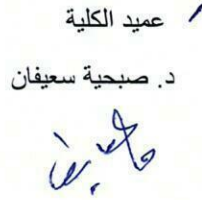 عميد الكلية
د. صبحية سعيفان